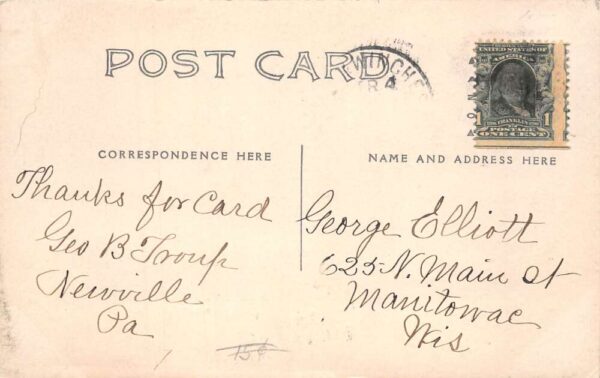 POST CARD
WINCH
UNITED STATES OF
AMERICA
1 FRANKLIN 1
POSTAGE
ONE CENT
CORRESPONDENCE HERE
NAME AND ADDRESS HERE
Thanks for Card
Geo B Troup
Newville
Pa
George Elliott
625-N. Main St
Manitowac
Wis
15¢